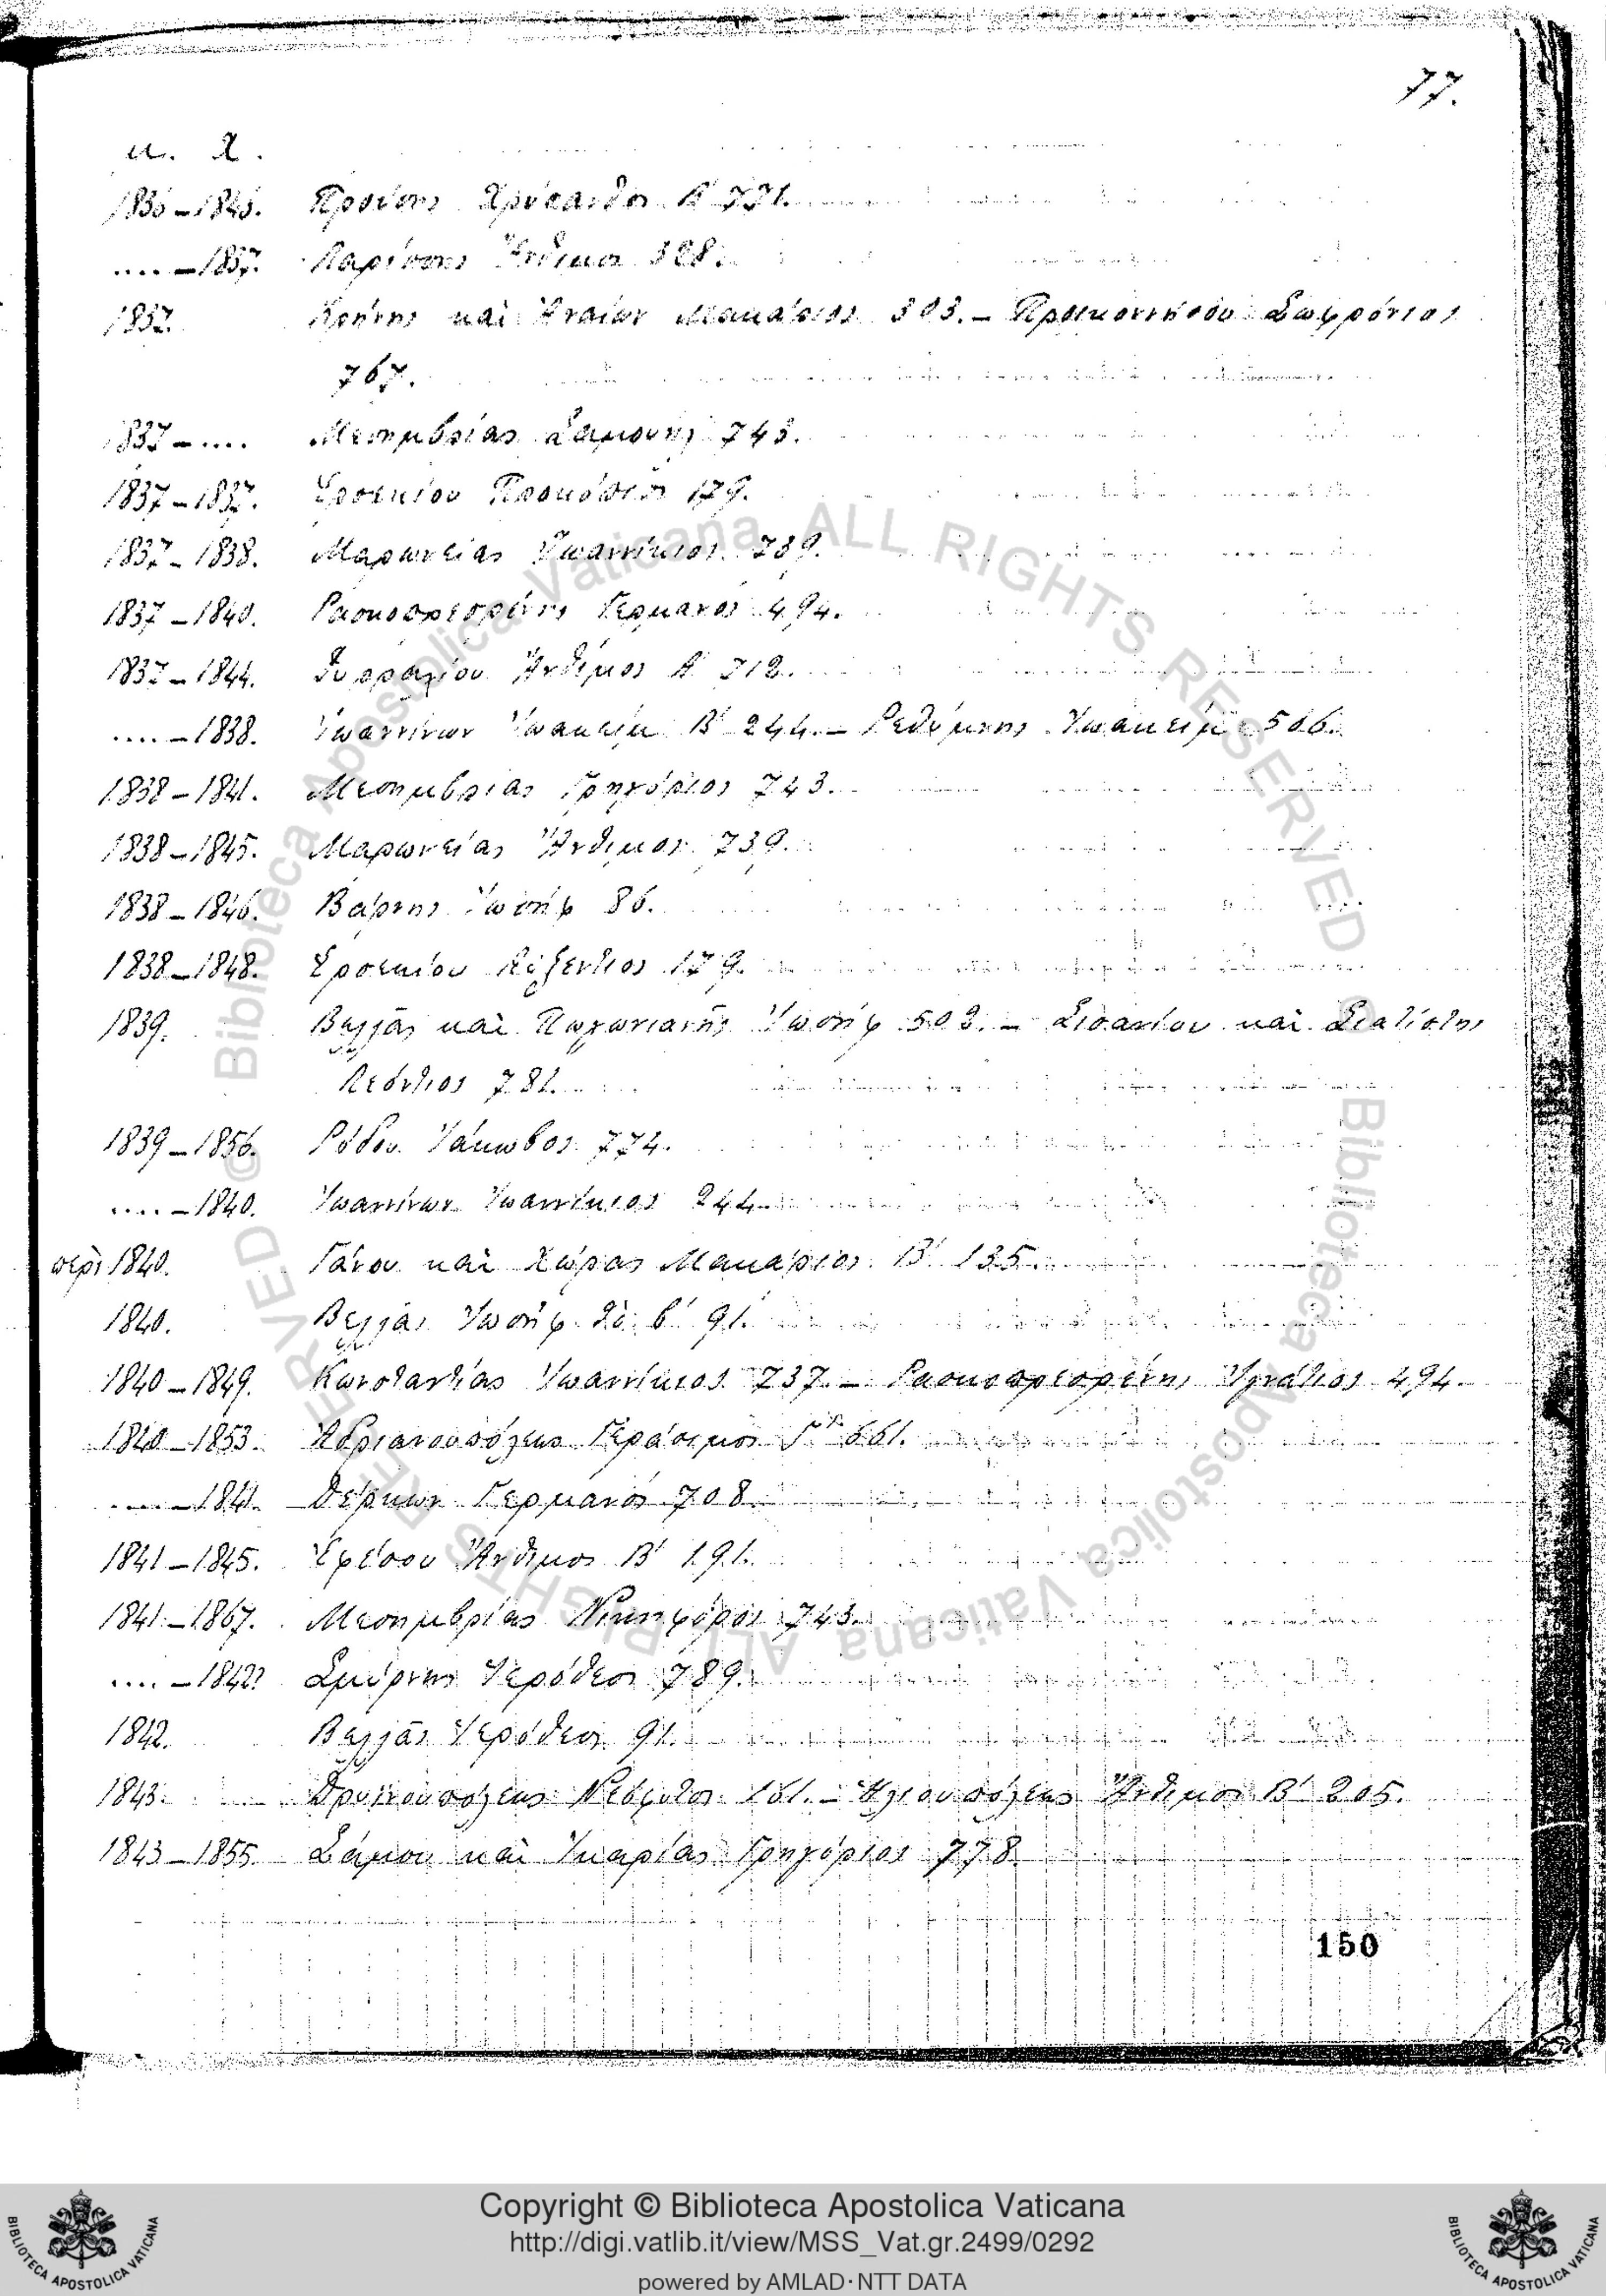 77.
μ. Χ.
1836 – 1845. Προύσης Χρύσανθος Α' 771.
.... – 1837. Λαρίσσης Ἄνθιμος 328.
1837. Κρήνης καὶ Ἀναίων Μακάριος 303. – Προικοννήσου Σωφρόνιος
767.
1837 – .... Μεσημβρίας Σαμουὴλ 743.
1837 – 1837. Ἑρσεκίου Προκόπιος 179.
1837 – 1838. Μαρωνείας Ἰωαννίκιος 739.
1837 – 1840. Ρασκοπρεσρένης Γερμανὸς 494.
1837 – 1844. Δυρραχίου Ἄνθιμος Α' 712.
.... – 1838. Ἰωαννίνων Ἰωακεὶμ Β' 244. – Ρεθύμνης Ἰωακεὶμ 506.
1838 – 1841. Μεσημβρίας Γρηγόριος 743.
1838 – 1845. Μαρωνείας Ἄνθιμος 739.
1838 – 1846. Βάρνης Ἰωσὴφ 86.
1838 – 1848. Ἑρσεκίου Αὐξέντιος 179.
1839. Βελλᾶς καὶ Πωγωνιανῆς Ἰωσὴφ 502. – Σισανίου καὶ Σιατίστης
Λεόντιος 781.
1839 – 1856. Ρόδου Ἰάκωβος 774.
.... – 1840. Ἰωαννίνων Ἰωαννίκιος 244.
περὶ 1840. Γάνου καὶ Χώρας Μακάριος Β' 135.
1840. Βελλᾶς Ἰωσὴφ τὸ β' 91.
1840 – 1849. Κωνσταντίας Ἰωαννίκιος 737. – Ρασκοπρεσρένης Ἰγνάτιος 494.
1840 – 1853. Ἀδριανουπόλεως Γεράσιμος 661.
.... – 1841. Δέρκων Γερμανὸς 708.
1841 – 1845. Ἐφέσου Ἄνθιμος Β' 191.
1841 – 1867. Μεσημβρίας Νικηφόρος 743.
.... – 1842? Σμύρνης Ἱερόθεος 789.
1842. Βελλᾶς Ἱερόθεος 91.
1843. Δρυϊνουπόλεως Νεόφυτος 161. – Ἡλιουπόλεως Ἄνθιμος Β' 205.
1843 – 1855. Σάμου καὶ Ἰκαρίας Γρηγόριος 778.
150
Copyright © Biblioteca Apostolica Vaticana
http://digi.vatlib.it/view/MSS_Vat.gr.2499/0292
powered by AMLAD·NTT DATA
BIBLIOTECA APOSTOLICA VATICANA
BIBLIOTECA APOSTOLICA VATICANA